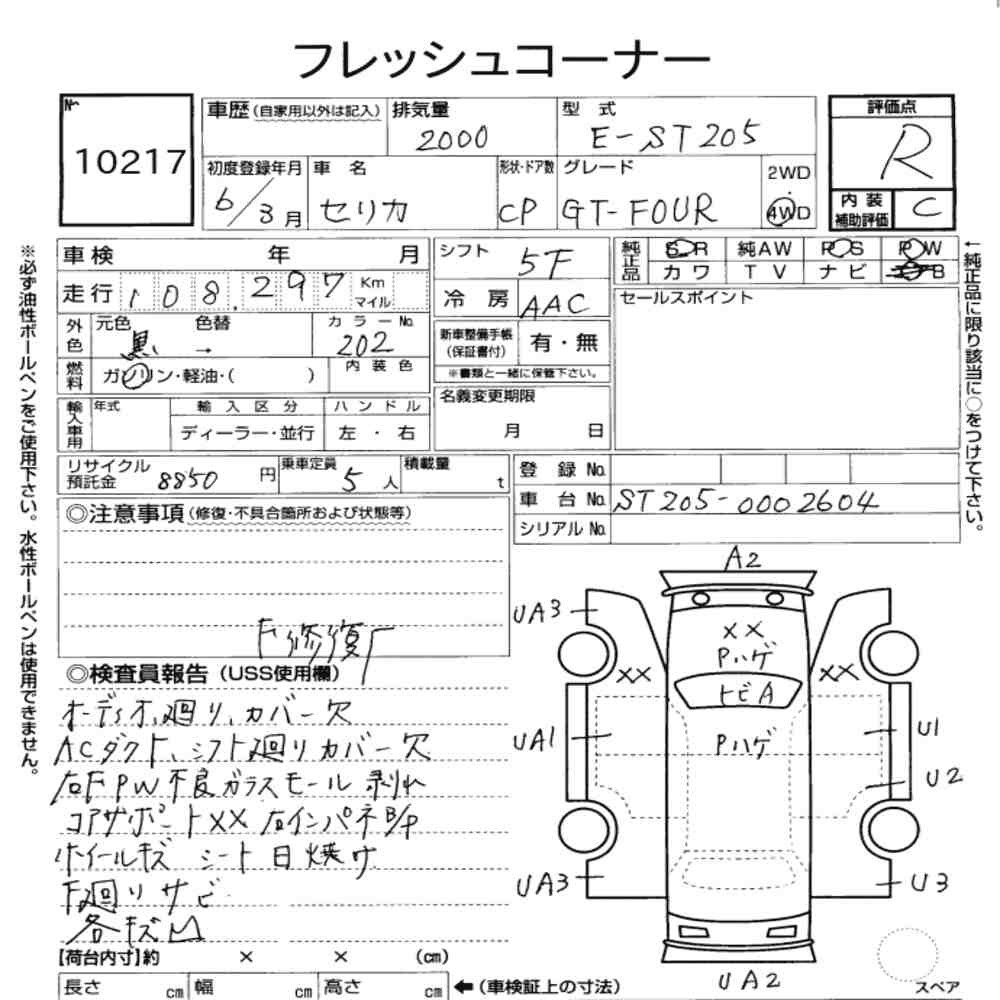 フレッシュコーナー
№ 10217
車歴(自家用以外は記入) 排気量 2000 型 式 E-ST205
初度登録年月 6/3月 車 名 セリカ 形状・ドア数 CP グレード GT-FOUR 2WD ・ 4WD
評価点 R
内装補助評価 C
車検 年 月
走行 108,297 Km マイル
外色 元色 黒 → 色替 カラーNo. 202
燃料 ガソリン・軽油・( ) 内装色
輸入車用 年式 輸入区分 ディーラー・並行 ハンドル 左・右
シフト 5F
冷 房 AAC
新車整備手帳(保証書付) 有・無
※書類と一緒に保管下さい。
名義変更期限 月 日
純正品 SR 純AW PS PW
カワ TV ナビ B
セールスポイント
リサイクル預託金 8850円 乗車定員 5人 積載量 t
登 録 No.
車 台 No. ST205-0002604
シリアル No.
◎注意事項(修復・不具合箇所および状態等)
F修復
◎検査員報告(USS使用欄)
オーディオ廻り、カバー欠
ACダクト、シフト廻りカバー欠
右FPW不良 ガラスモール剥れ
コアサポートXX 右インパネB/P
ホイールキズ シート日焼け
F廻りサビ
各キズ凹
【荷台内寸】約 × × (cm)
長さ cm 幅 cm 高さ cm ←(車検証上の寸法)
A2
UA3
XX
Pハゲ
XX XX
トビA
UA1 Pハゲ U1
U2
UA3 U3
UA2
スペア
※必ず油性ボールペンをご使用下さい。水性ボールペンは使用できません。
←純正品に限り該当に○をつけて下さい。